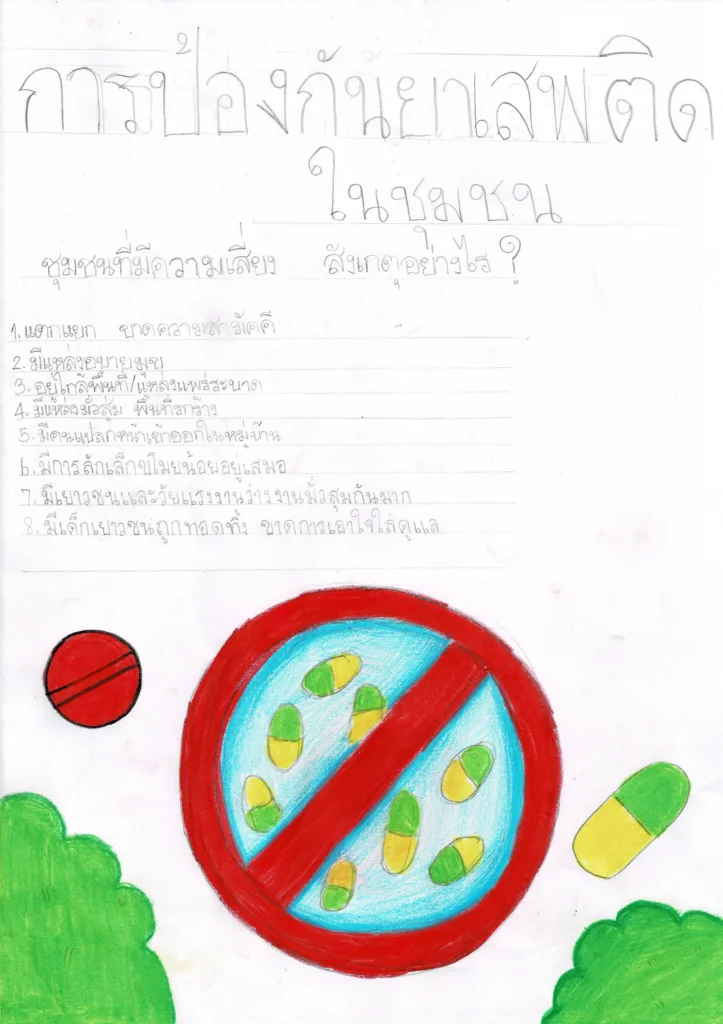 การป้องกันยาเสพติด
ในชุมชน
ชุมชนที่มีความเสี่ยง สังเกตุอย่างไร ?
1. แตกแยก ขาดความสามัคคี
2. มีแหล่งอบายมุข
3. อยู่ใกล้พื้นที่/แหล่งแพร่ระบาด
4. มีแหล่งมั่วสุ่ม พื้นที่รกร้าง
5. มีคนแปลกหน้าเข้าออกในหมู่บ้าน
6. มีการลักเล็กขโมยน้อยอยู่เสมอ
7. มีเยาวชนและวัยแรงงานว่างงานมั่วสุมกันมาก
8. มีเด็กเยาวชนถูกทอดทิ้ง ขาดการเอาใจใส่ดูแล